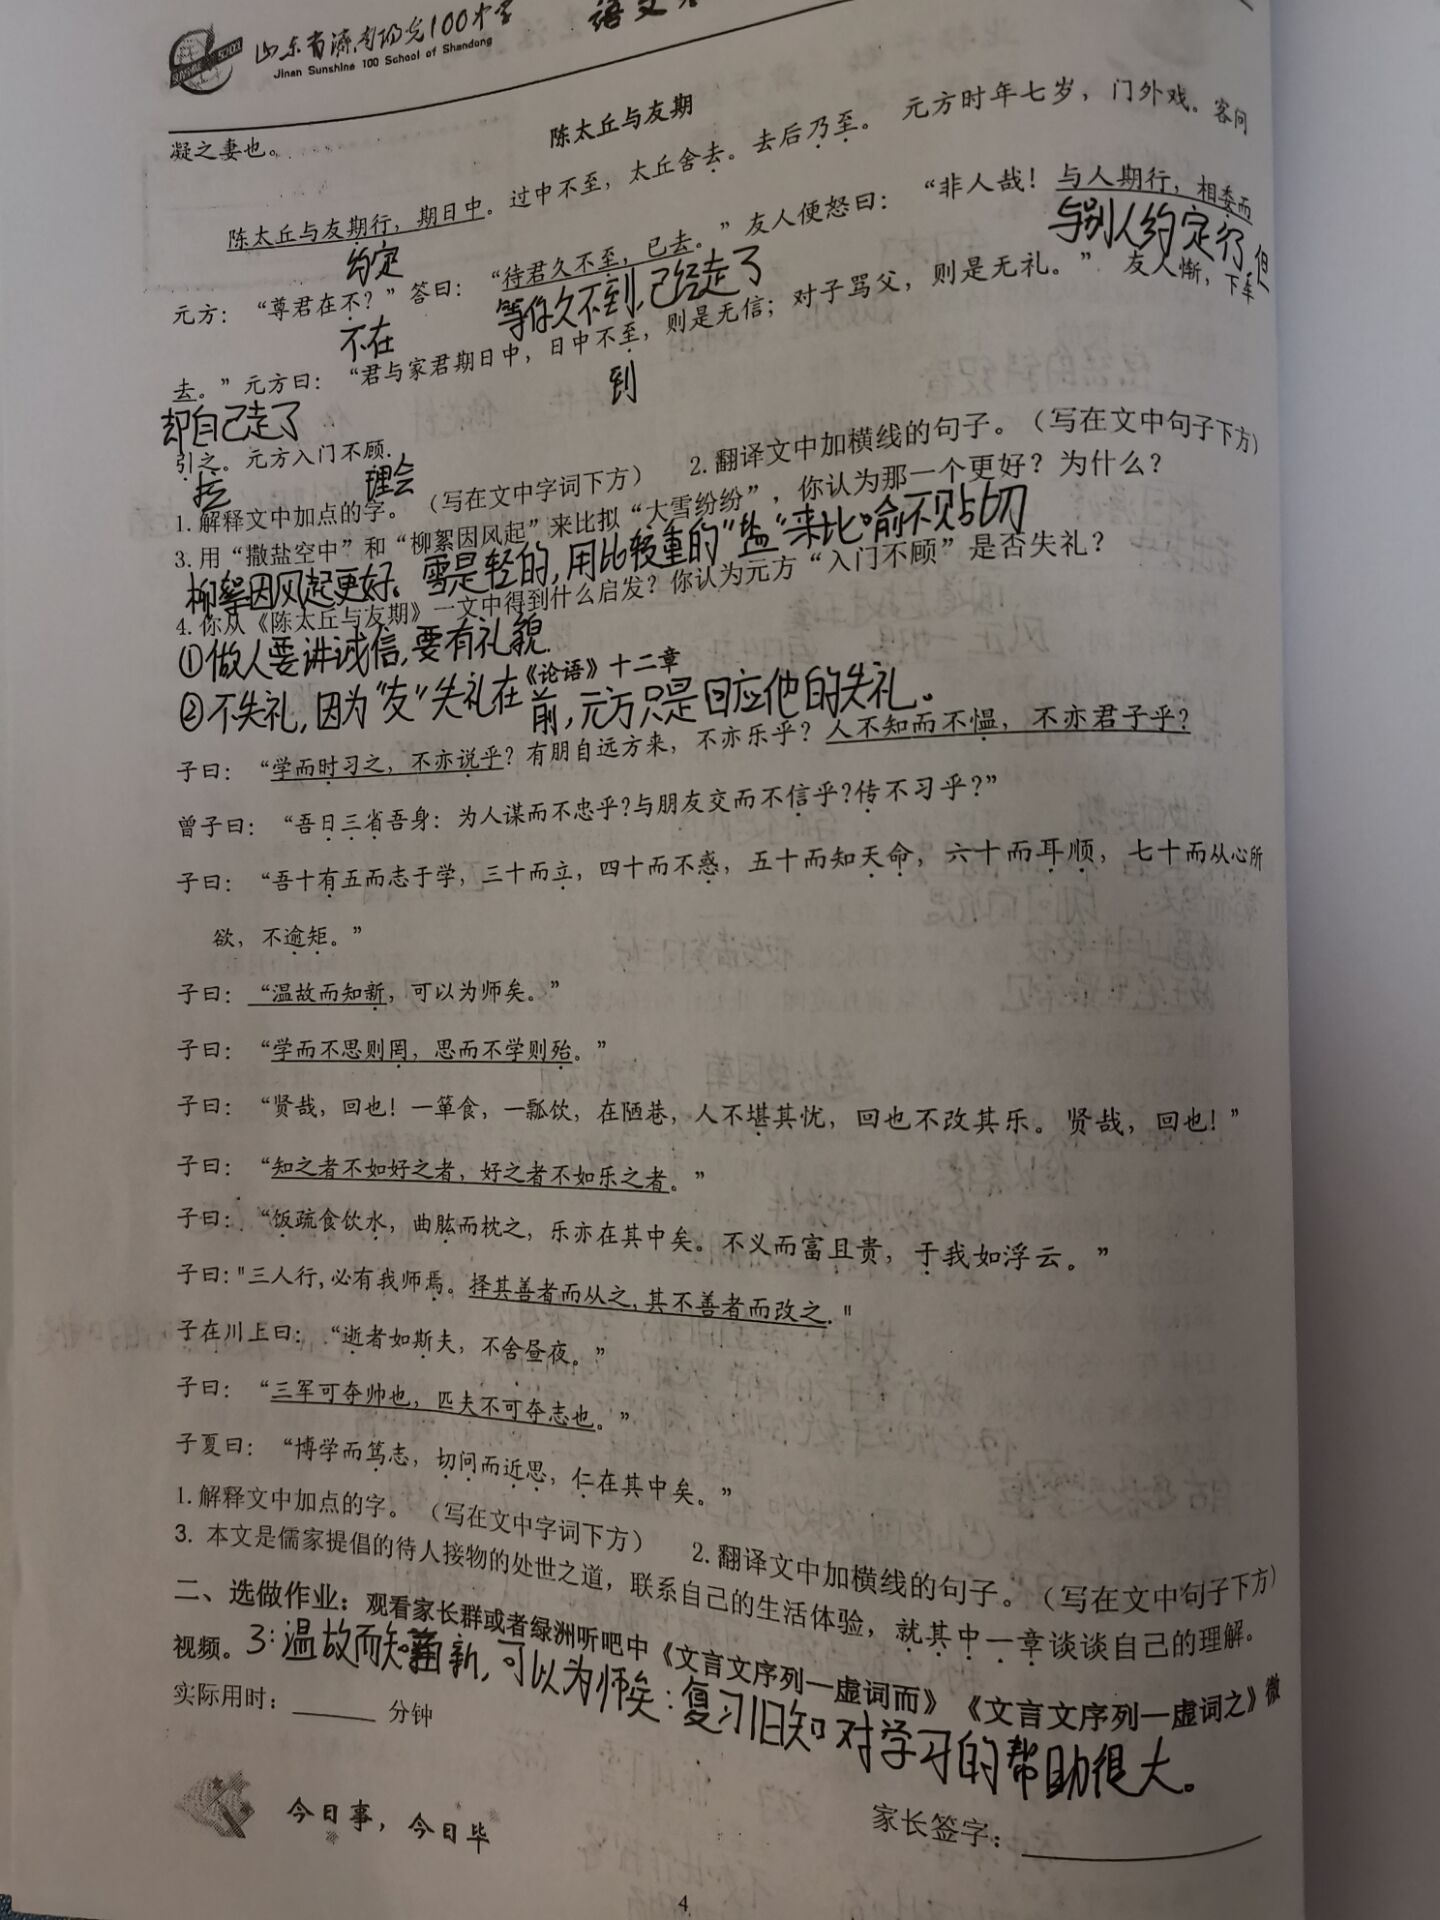 山东省济南阳光100中学
Jinan Sunshine 100 School of Shandong
语文
凝之妻也。
陈太丘与友期
陈太丘与友期行，期日中。过中不至，太丘舍去。去后乃至。元方时年七岁，门外戏。客问
约定
元方：“尊君在不？”答曰：“待君久不至，已去。”友人便怒曰：“非人哉！与人期行，相委而
不在
等你久不到，已经走了
与别人约定行，但
去。”元方曰：“君与家君期日中，日中不至，则是无信；对子骂父，则是无礼。”友人惭，下车
却自己走了
到
引之。元方入门不顾.
拉
理会
1.解释文中加点的字。（写在文中字词下方） 2.翻译文中加横线的句子。（写在文中句子下方）
3.用“撒盐空中”和“柳絮因风起”来比拟“大雪纷纷”，你认为那一个更好？为什么？
柳絮因风起更好。雪是轻的，用比较重的“盐”来比喻不贴切
4.你从《陈太丘与友期》一文中得到什么启发？你认为元方“入门不顾”是否失礼？
①做人要讲诚信，要有礼貌.
《论语》十二章
②不失礼，因为“友”失礼在前，元方只是回应他的失礼。
子曰：“学而时习之，不亦说乎？有朋自远方来，不亦乐乎？人不知而不愠，不亦君子乎？
曾子曰：“吾日三省吾身：为人谋而不忠乎?与朋友交而不信乎?传不习乎?”
子曰：“吾十有五而志于学，三十而立，四十而不惑，五十而知天命，六十而耳顺，七十而从心所
欲，不逾矩。”
子曰：“温故而知新，可以为师矣。”
子曰：“学而不思则罔，思而不学则殆。”
子曰：“贤哉，回也！一箪食，一瓢饮，在陋巷，人不堪其忧，回也不改其乐。贤哉，回也！”
子曰：“知之者不如好之者，好之者不如乐之者。”
子曰：“饭疏食饮水，曲肱而枕之，乐亦在其中矣。不义而富且贵，于我如浮云。”
子曰："三人行,必有我师焉。择其善者而从之,其不善者而改之."
子在川上曰：“逝者如斯夫，不舍昼夜。”
子曰：“三军可夺帅也，匹夫不可夺志也。”
子夏曰：“博学而笃志，切问而近思，仁在其中矣。”
1.解释文中加点的字。（写在文中字词下方） 2.翻译文中加横线的句子。（写在文中句子下方）
3. 本文是儒家提倡的待人接物的处世之道，联系自己的生活体验，就其中一章谈谈自己的理解.
二、选做作业：观看家长群或者绿洲听吧中《文言文序列—虚词而》《文言文序列—虚词之》微
视频。
3：温故而知新，可以为师矣：复习旧知对学习的帮助很大。
实际用时：______ 分钟
今日事，今日毕
家长签字：
4